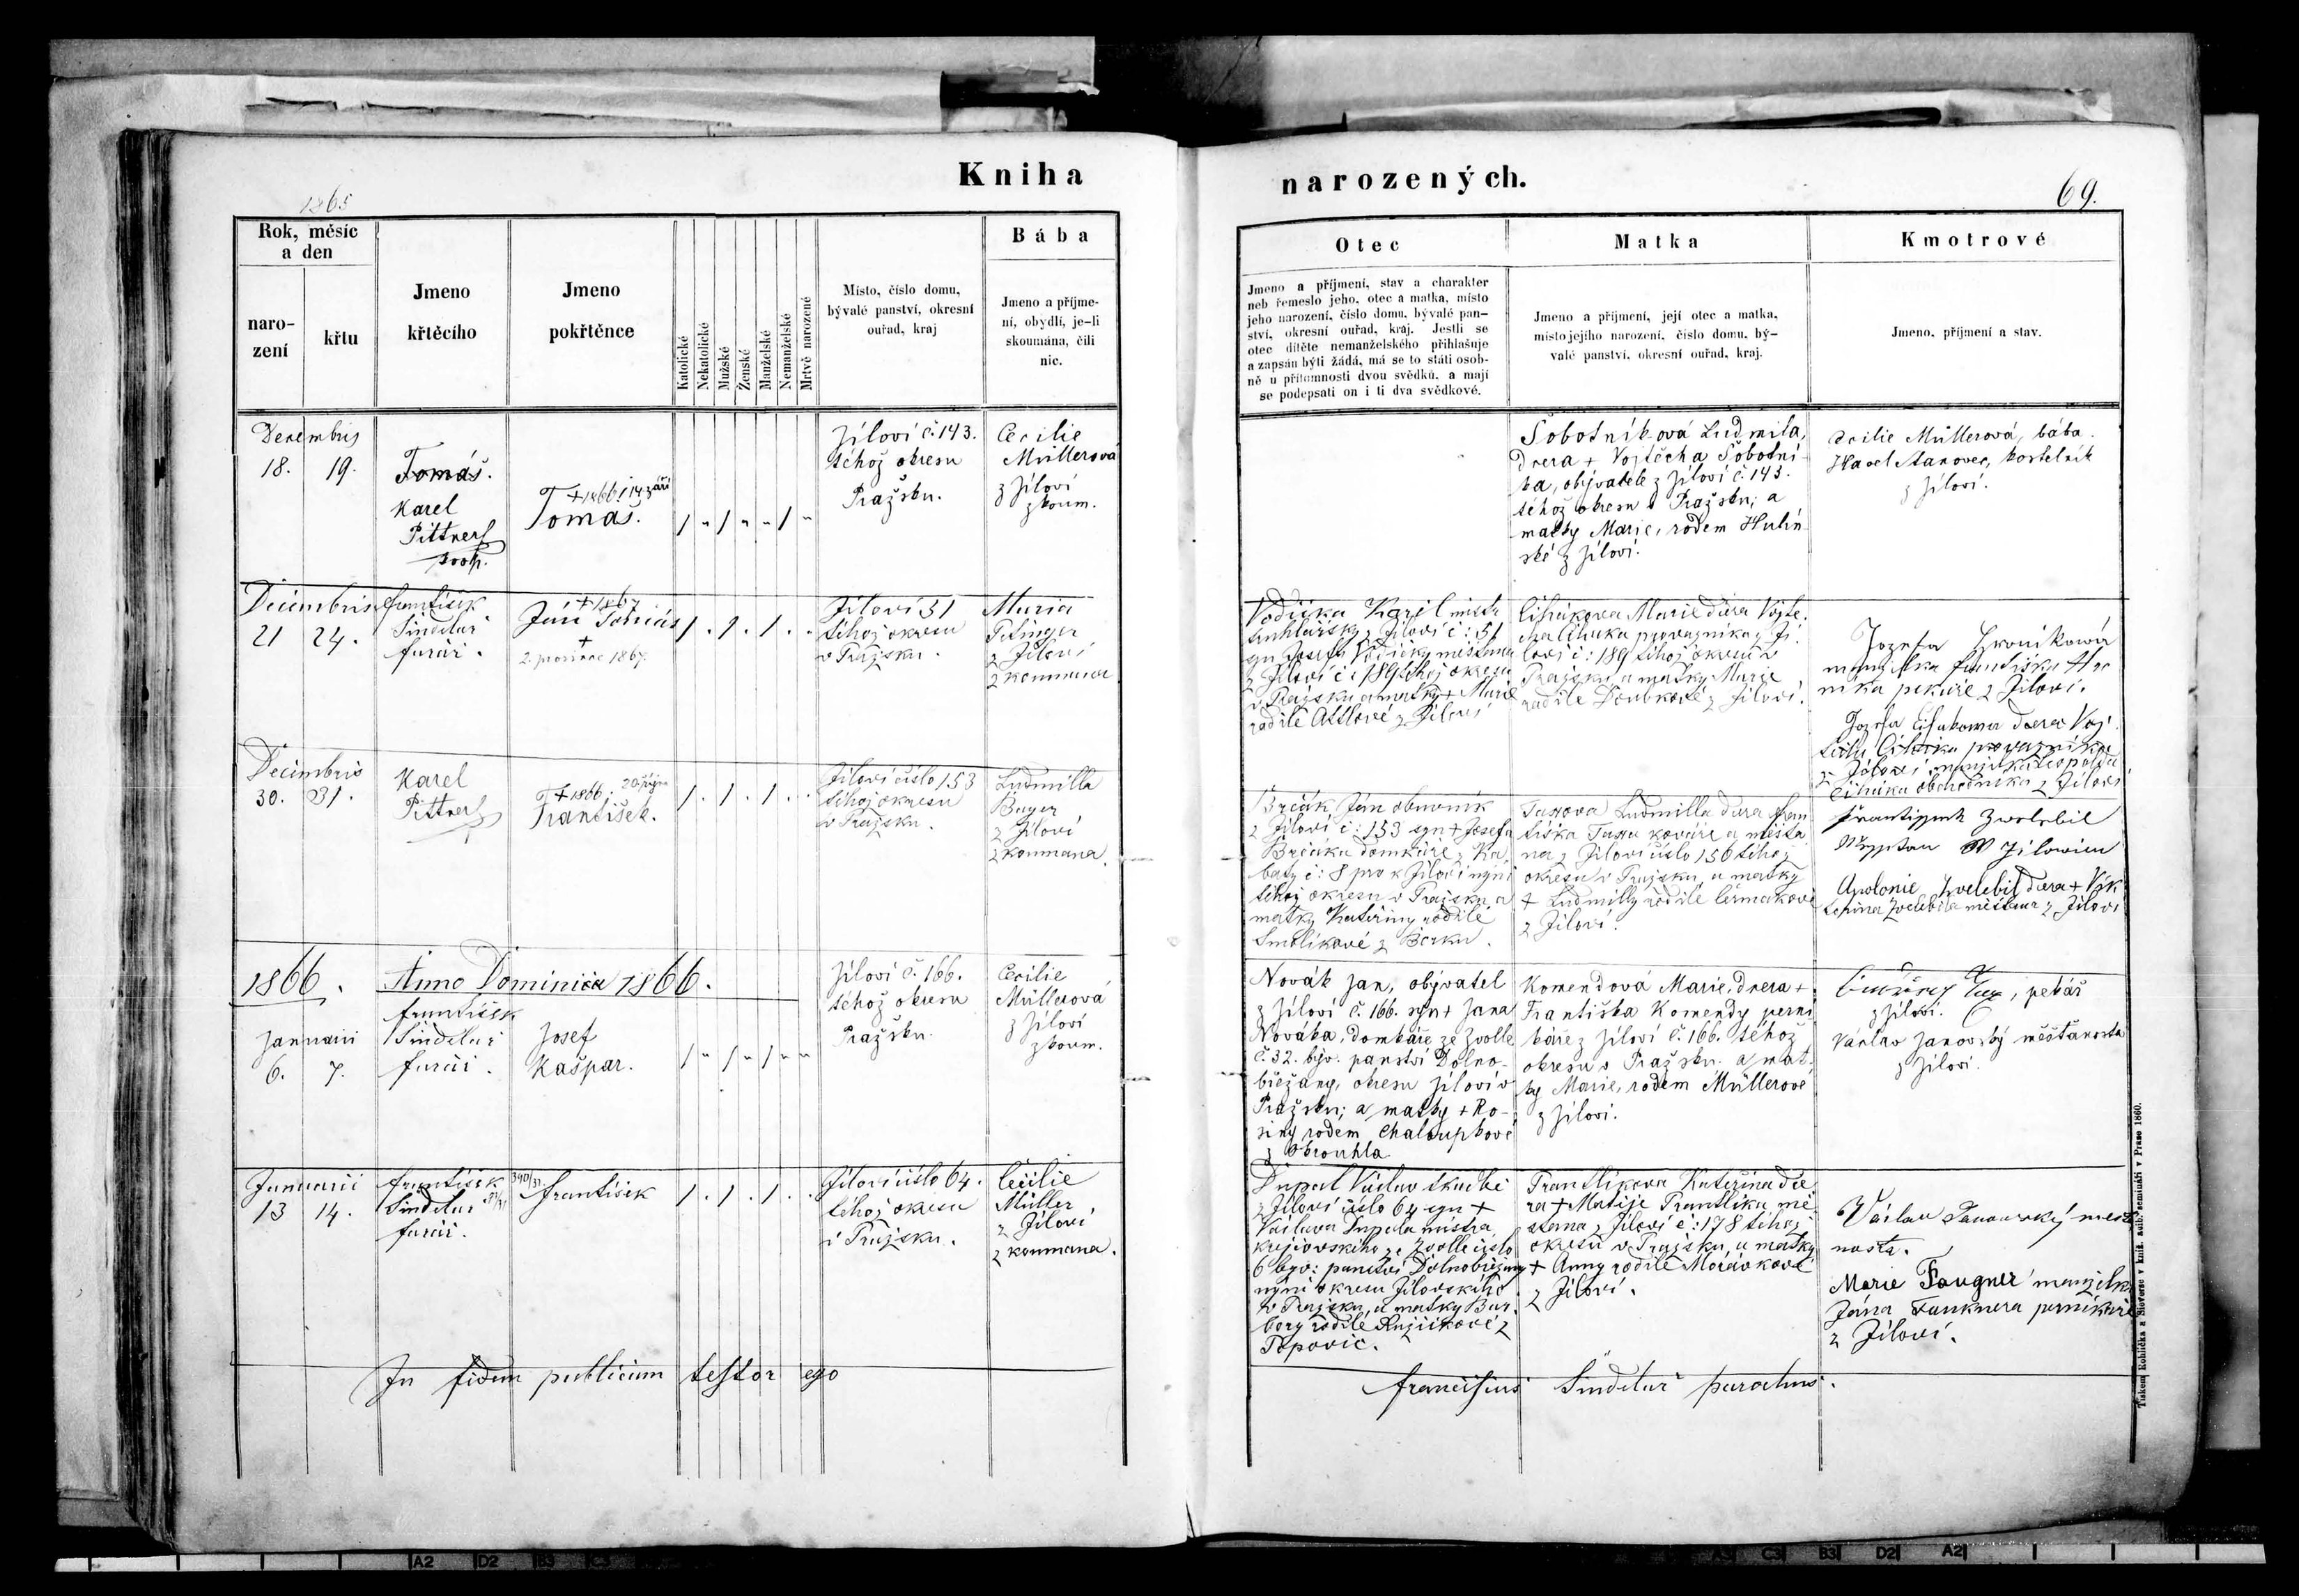 Kniha
narozených.
69.
1865
Rok, měsíc
a den
naro-
zení
křtu
Jmeno
křtěcího
Jmeno
pokřtěnce
Katolické
Nekatolické
Mužské
Ženské
Manželské
Nemanželské
Mrtvě narozené
Místo, číslo domu,
bývalé panství, okresní
ouřad, kraj
Bába
Jmeno a příjme-
ní, obydlí, je-li
skoumána, čili
nic.
Otec
Jmeno a příjmení, stav a charakter
neb řemeslo jeho, otec a matka, místo
jeho narození, číslo domu, bývalé pan-
ství, okresní ouřad, kraj. Jestli se
otec dítěte nemanželského přihlašuje
a zapsán býti žádá, má se to státi osob-
ně u přítomnosti dvou svědků, a mají
se podepsati on i ti dva svědkové.
Matka
Jmeno a příjmení, její otec a matka,
místo jejího narození, číslo domu, bý-
valé panství, okresní ouřad, kraj.
Kmotrové
Jmeno, příjmení a stav.
Decembris
18. 19.
Tomáš.
Karel
Pittnerl
koop.
+ 1866 / 14 září
Tomáš.
Jíloví č. 143.
téhož okresu
Pražsku.
Cecilie
Müllerová
z Jíloví
zkoum.
Sobotníková Ludmila,
dcera + Vojtěcha Sobotní-
ka, obývatele z Jíloví č. 143.
téhož okresu v Pražsku; a
matky Marie, rodem Hulín-
ské z Jíloví.
Cecilie Müllerová, bába.
Havel Stanovec, kostelník
z Jíloví.
Decembris
21 24.
František
Sindelař
farář.
+ 1867
Jan Tomáš
+
2. prosince 1867.
Jíloví 51
téhož okresu
v Pražsku.
Maria
z Jíloví
zkoumana
Vodička Karel mistr
truhlářský z Jíloví č: 51
syn Josefa Vodičky měštana
z Jíloví č: 189 téhož okresu
v Pražsku a matky + Marie
rodilé z Jíloví
Cihákova Marie dcera Vojtě-
cha Ciháka provazníka z Jí-
loví č: 189 téhož okresu v
Pražsku a matky Marie
rodilé Doubkové z Jíloví.
Jozefa
manželka Františka
níka pekaře z Jíloví.
Jozefa Cihakowa dcera Voj-
těcha Ciháka provazníka
z Jíloví, manželka Leopolda
Ciháka obchodníka z Jíloví
Decembris
30. 31.
Karel
Pittnerl
+ 1866. 20 října
František.
Jíloví číslo 153
téhož okresu
v Pražsku.
Ludmilla
Bayer
z Jíloví
zkoumana.
Brčák Jan obuvník
z Jíloví č: 153 syn + Josefa
Brčáka domkáře z Ka-
báty č: 8 pro k Jíloví nyní
téhož okresu v Pražsku, a
matky Kateřiny rodilé
Smolíkové z Borku.
Ludmilla dcera Fran-
tiška kováře a měšta-
na z Jíloví číslo 156 téhož
okresu v Pražsku, a matky
+ Ludmilly rodilé Čermakové
z Jíloví.
Frantissek Zwelebil
w Jilowim
Apolonie Zvelebil dcera + Vik-
torina Zvelebila měštana z Jíloví
1866. Anno Domini 1866.
Januarii
6. 7.
František
Sindelař
farář.
Josef
Kašpar.
Jíloví č. 166.
téhož okresu
Pražsku.
Cecilie
Müllerová
z Jíloví
zkoum.
Novák Jan, obývatel
z Jíloví č. 166. syn + Jana
Nováka, domkáře ze Zvolle
č. 32. býv. panství Dolno-
břežany, okresu Jíloví v
Pražsku; a matky + Ro-
siny rodem Chaloupkové
z Okrouhla
Komendová Marie, dcera +
Františka Komendy perní-
káře z Jíloví č. 166. téhož
okresu v Pražsku, a mat-
ky Marie, rodem Müllerové
z Jíloví.
pekář
z Jíloví.
Václav Janovský měšťanosta
z Jíloví.
Januarii
13 14.
František
Sindelař
farář.
František
Jíloví číslo 64.
téhož okresu
v Pražsku.
Cecilie
Müller
z Jíloví
zkoumana.
Dupal Václav
z Jíloví číslo 64 syn +
Václava Dupala mistra
krejčovského ze Zvolle číslo
6 byv: panství Dolnobřežany
nyní okresu Jílovského
v Pražsku, a matky Bar-
bory rodilé Růžičkové z
Popovic.
Frantlikova Kateřina dce-
ra + Matěje Frantlíka mě-
štana z Jíloví č: 178 téhož
okresu v Pražsku, a matky
+ Anny rodilé Morávkové
z Jíloví.
Václav Janowský
nosta.
Marie Faugner manželka
Jána Fauknera perníkáře
z Jíloví.
In fidem publicam testor ego
Franciscus Sindelař parochus.
Tiskem Rohlíčka a Sieverse v kníž. arcib. semináři v Praze 1860.
A2 D2 B3 C3
C3 B3 D2 A2